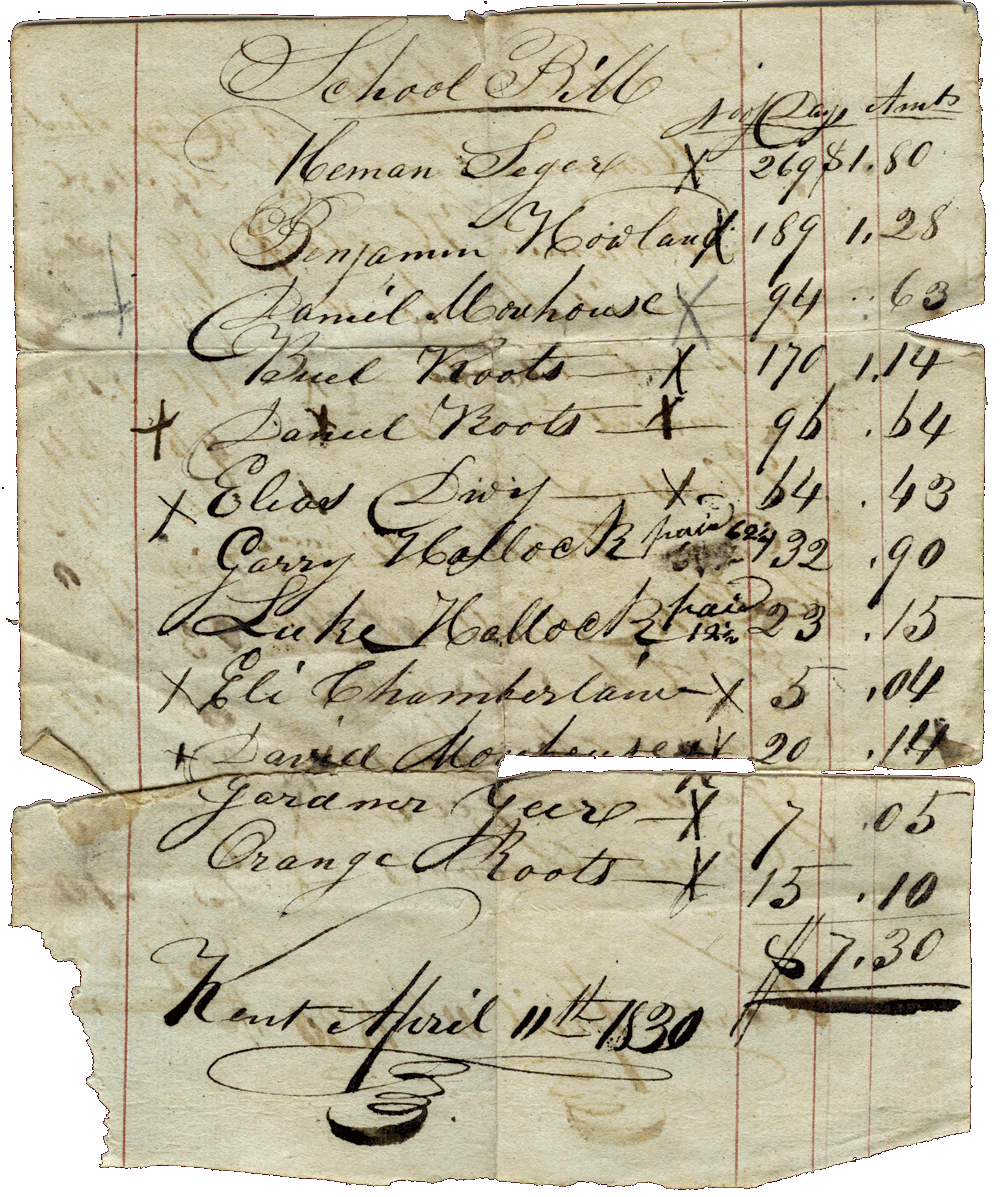 School Bill
No of Days Amts
Heman Seger X 269 $1.80
Benjamin Howland X 189 1.28
Daniel Morhouse X 94 .63
Buel Roots X 170 1.14
+ Daniel Roots X 96 .64
X Elias X 64 .43
Garry Hallock paid 132 .90
Luke Hallock paid 12½ 23 .15
X Eli Chamberlain X 5 .04
+ David Morehouse X 20 .14
Gardner Geer X 7 .05
Orange Roots X 15 .10
$7.30
Kent April 11th 1830